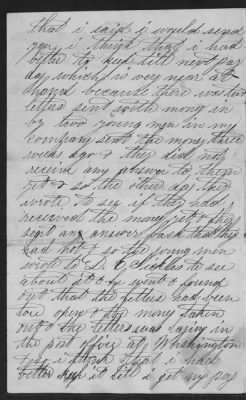 that i said i would send
you i think that i had
better to keep till next pay
day which is very near at
hand because there
letters sent with money in
by two young men in my
company sent the money three
weeks ago & they did not
receive any answer to them
yet & so the other day they
wrote to see if they had
received the money yet & they
sent an answer back that they
had not & so the young men
wrote to to see
about it & he went & found
out that the letters had been
tore open & the money taken
out & the letters was laying in
the post office at Washington
& so i think that i had
better keep it till i get my pay